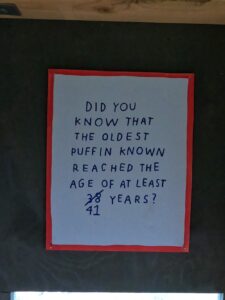 DID YOU
KNOW THAT
THE OLDEST
PUFFIN KNOWN
REACHED THE
AGE OF AT LEAST
38 YEARS?
41